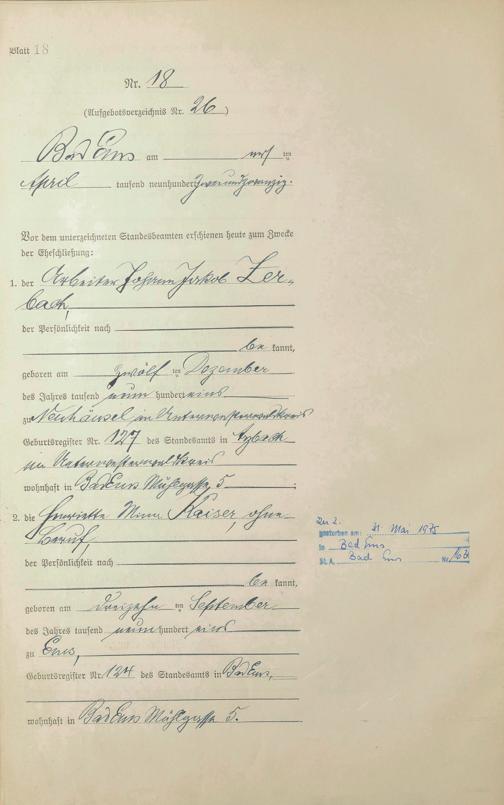 Blatt 18
Nr. 18
(Aufgebotsverzeichnis Nr. 26)
Bad Ems am ersten
April tausend neunhundert zweiundzwanzig.
Vor dem unterzeichneten Standesbeamten erschienen heute zum Zwecke
der Eheschließung:
1. der Arbeiter Johann Jakob Zer-
bach,
der Persönlichkeit nach
be kannt,
geboren am zwölften Dezember
des Jahres tausend neun hundert eins
zu Neuhäusel im Unterwesterwaldkreis
Geburtsregister Nr. 127 des Standesamts in
im Unterwesterwaldkreis
wohnhaft in Bad Ems Mühlgasse 5
2. die Henriette Minna Kaiser, ohne
Beruf,
der Persönlichkeit nach
be kannt,
geboren am dreizehnten September
des Jahres tausend neun hundert eins
zu Ems,
Geburtsregister Nr. 124 des Standesamts in Bad Ems,
wohnhaft in Bad Ems Mühlgasse 5.
Zu 2.
gestorben am: 31. Mai 1975
in Bad Ems
St. A. Bad Ems Nr.